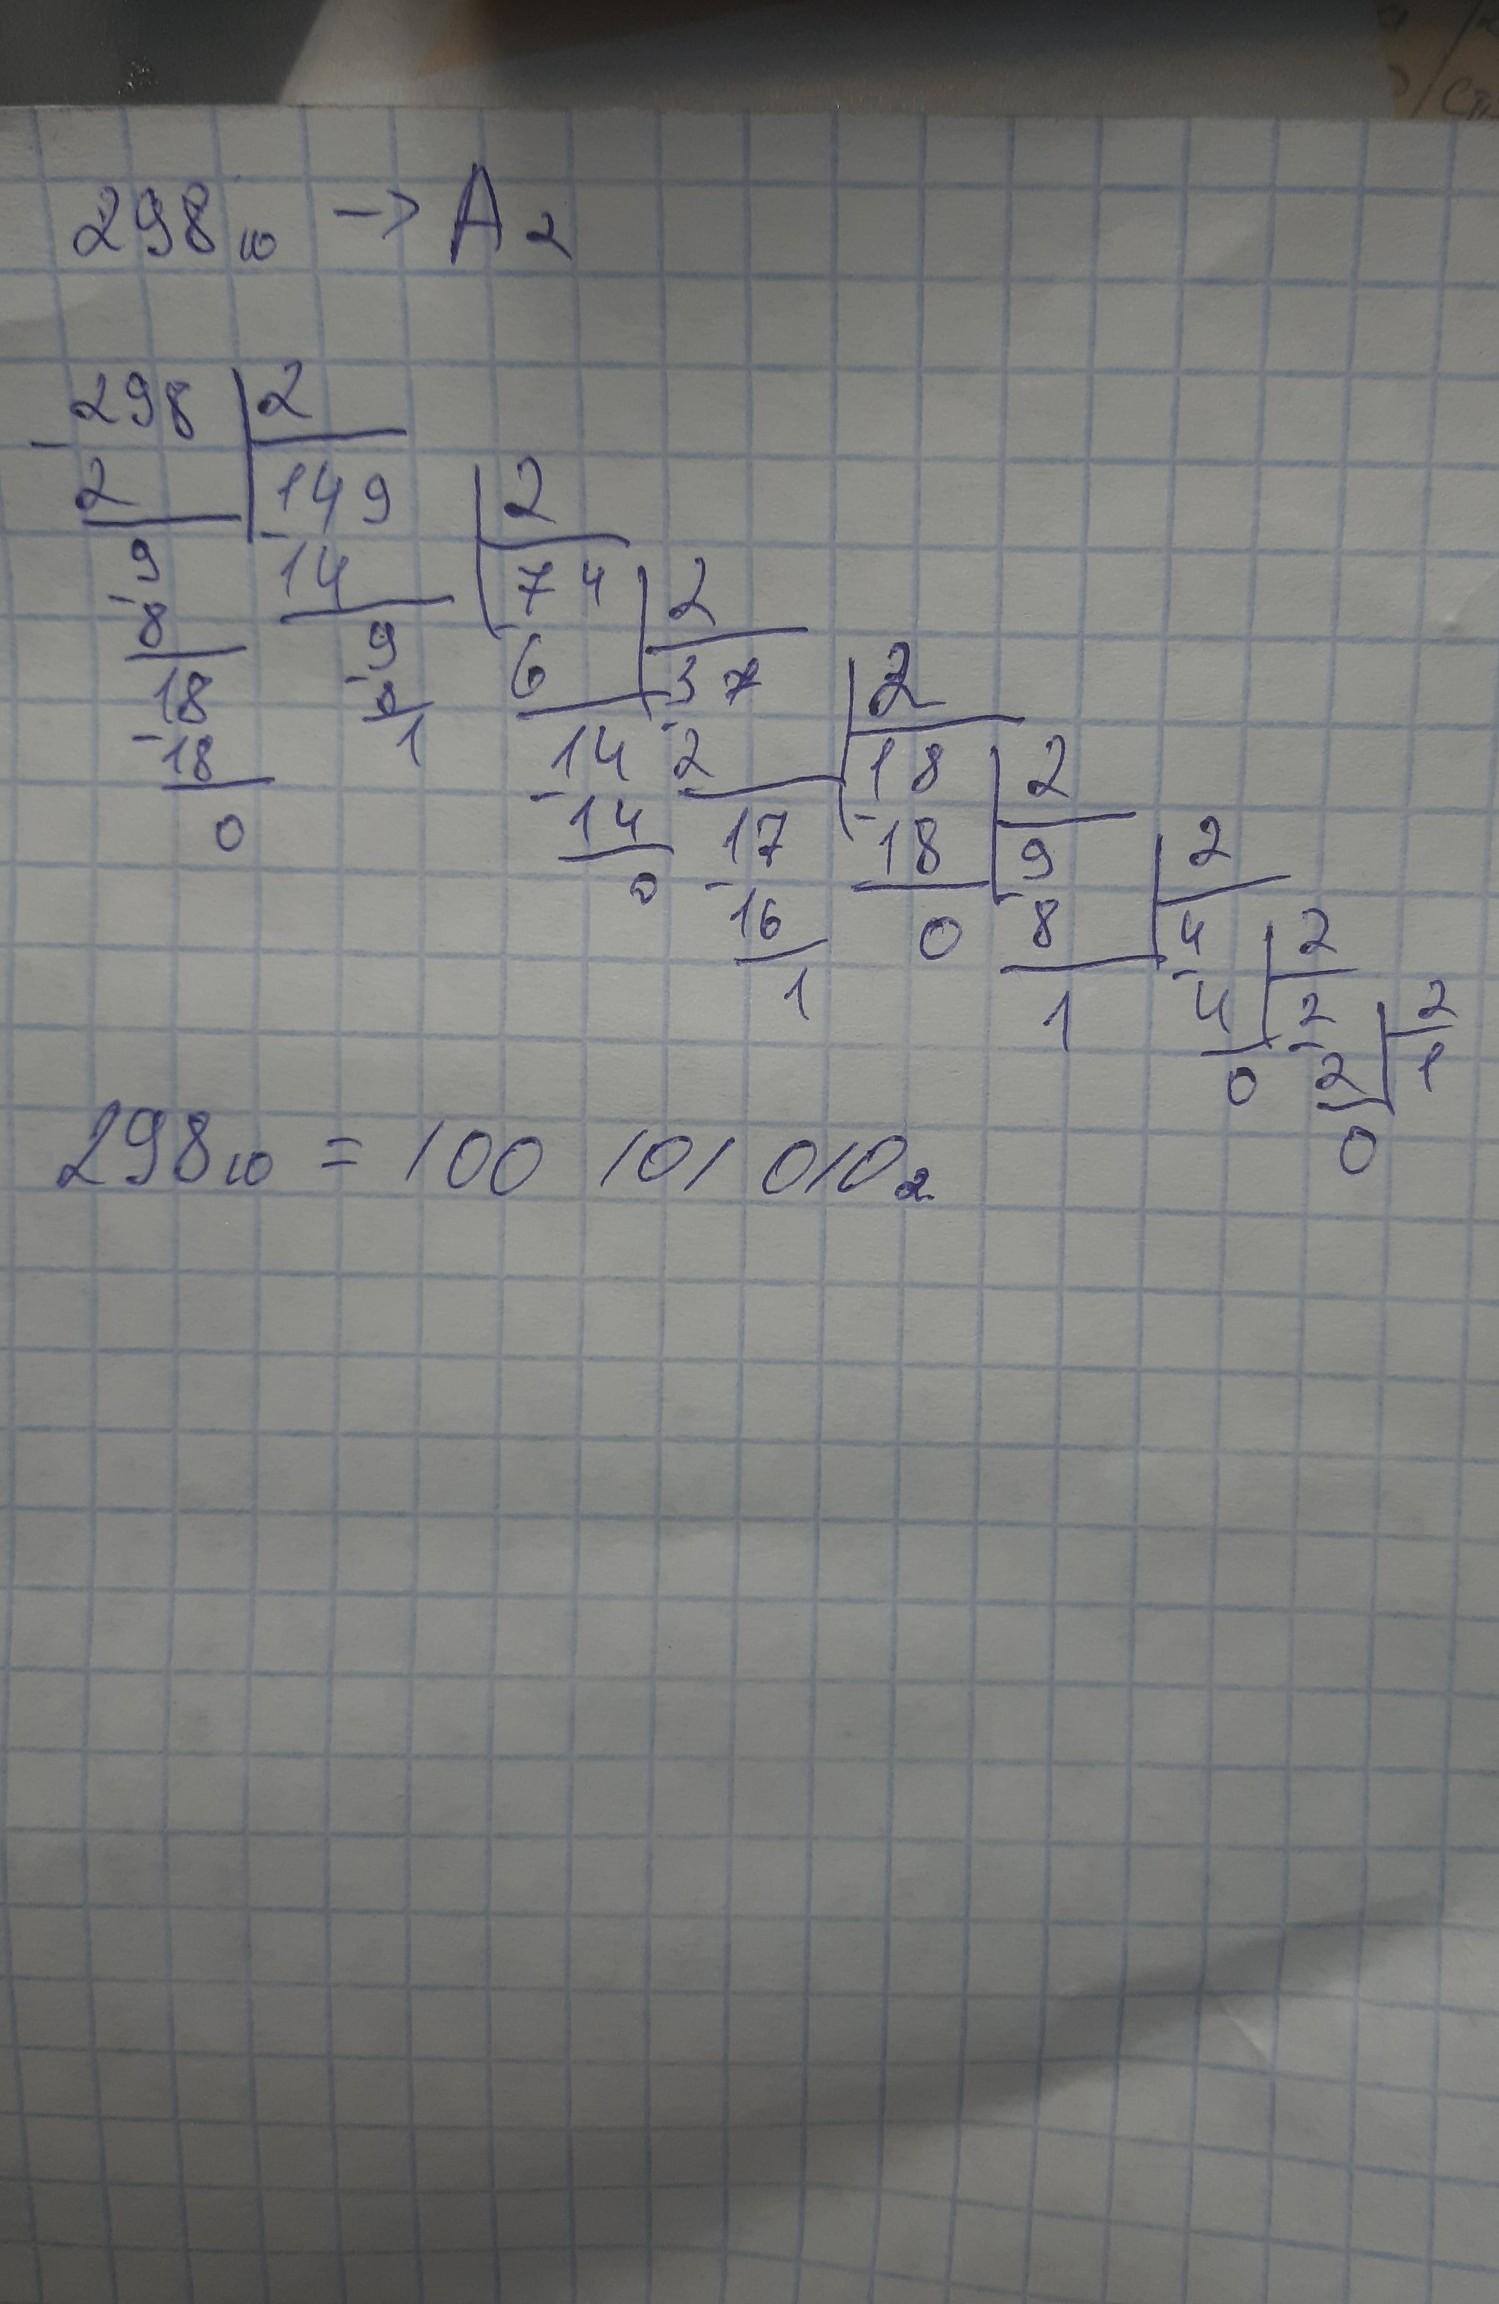 298₁₀ -> A₂
298 2
- 2 149 2
9 - 14 74 2
- 8 9 - 6 37 2
18 - 8 14 - 2 18 2
- 18 1 - 14 17 - 18 9 2
0 0 - 16 0 - 8 4 2
1 1 - 4 2 2
0 - 2 1
0
298₁₀ = 100 101 010₂